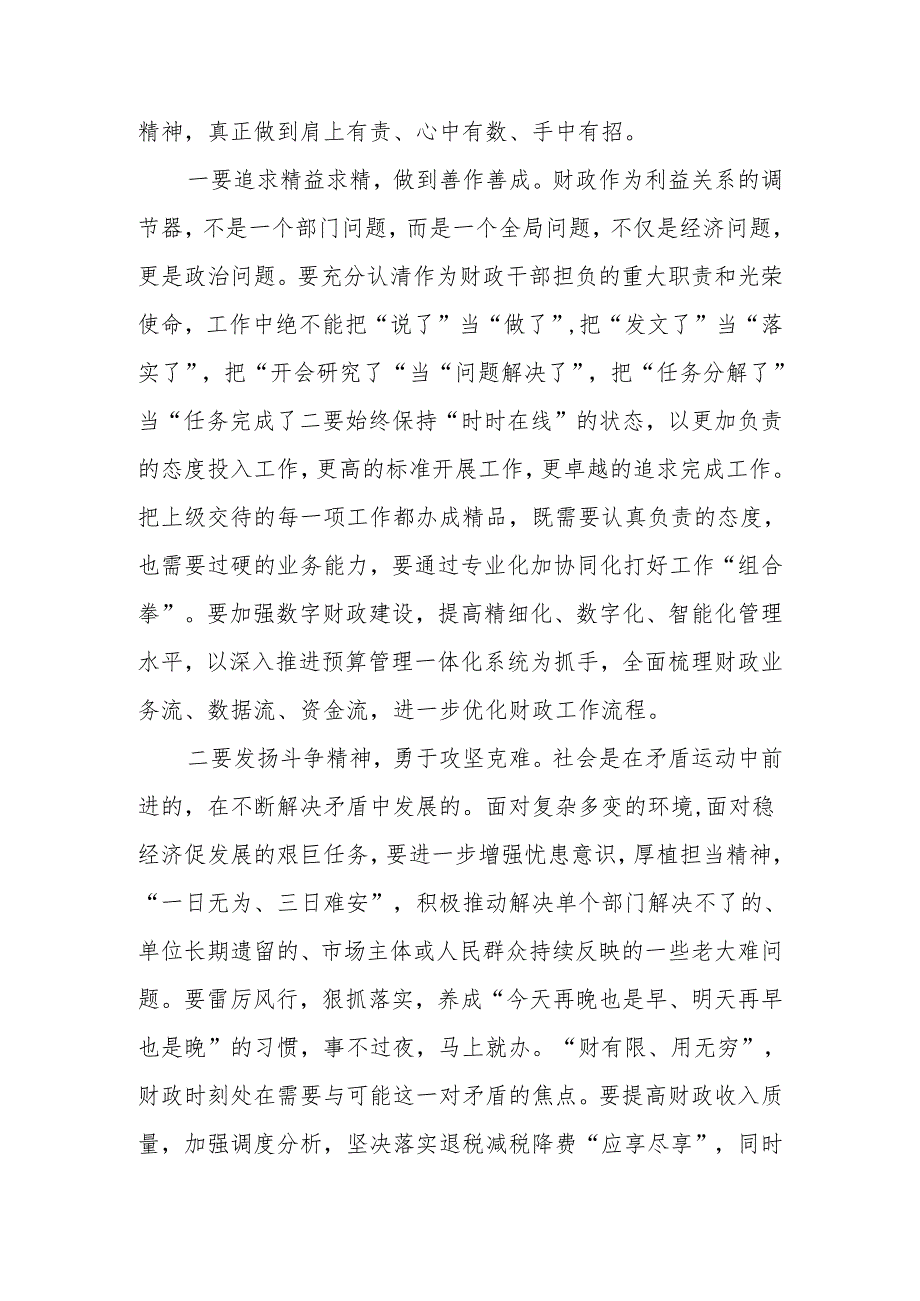 精神，真正做到肩上有责、心中有数、手中有招。
一要追求精益求精，做到善作善成。财政作为利益关系的调
节器，不是一个部门问题，而是一个全局问题，不仅是经济问题，
更是政治问题。要充分认清作为财政干部担负的重大职责和光荣
使命，工作中绝不能把“说了”当“做了”,把“发文了”当“落
实了”，把“开会研究了“当“问题解决了”，把“任务分解了”
当“任务完成了二要始终保持“时时在线”的状态，以更加负责
的态度投入工作，更高的标准开展工作，更卓越的追求完成工作。
把上级交待的每一项工作都办成精品，既需要认真负责的态度，
也需要过硬的业务能力，要通过专业化加协同化打好工作“组合
拳”。要加强数字财政建设，提高精细化、数字化、智能化管理
水平，以深入推进预算管理一体化系统为抓手，全面梳理财政业
务流、数据流、资金流，进一步优化财政工作流程。
二要发扬斗争精神，勇于攻坚克难。社会是在矛盾运动中前
进的，在不断解决矛盾中发展的。面对复杂多变的环境,面对稳
经济促发展的艰巨任务，要进一步增强忧患意识，厚植担当精神，
“一日无为、三日难安”，积极推动解决单个部门解决不了的、
单位长期遗留的、市场主体或人民群众持续反映的一些老大难问
题。要雷厉风行，狠抓落实，养成“今天再晚也是早、明天再早
也是晚”的习惯，事不过夜，马上就办。“财有限、用无穷”，
财政时刻处在需要与可能这一对矛盾的焦点。要提高财政收入质
量，加强调度分析，坚决落实退税减税降费“应享尽享”，同时